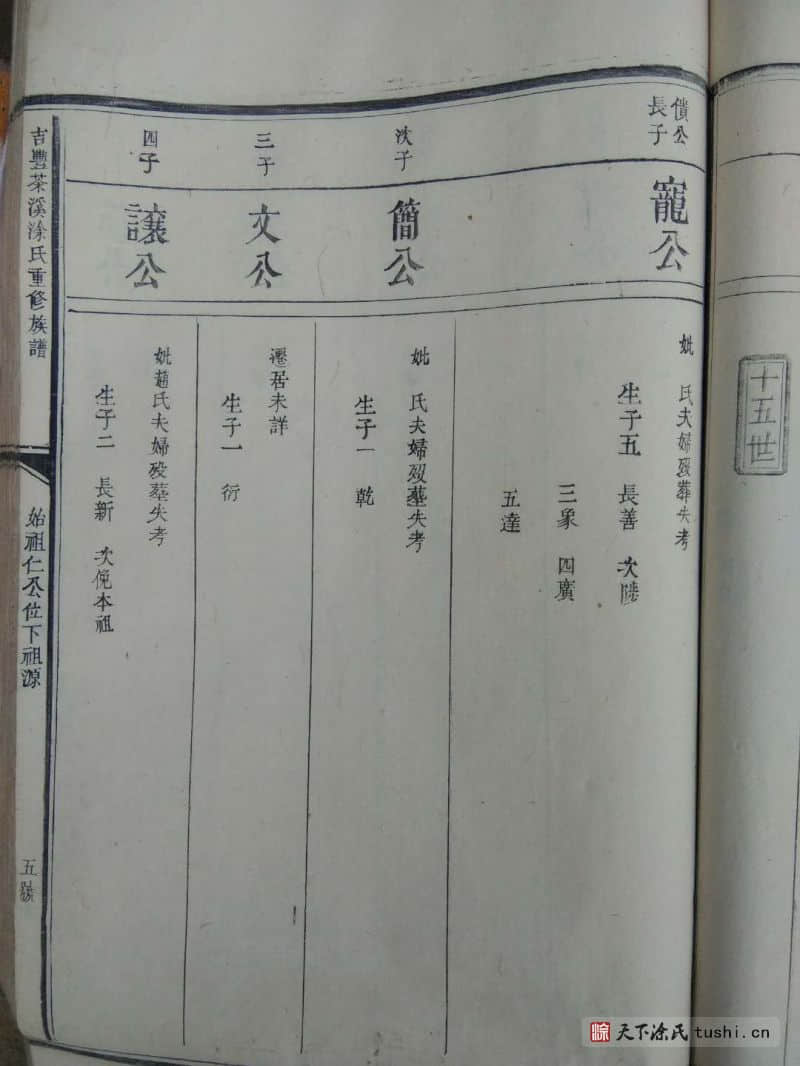 十五世
僨公
長子
寵公
妣 氏夫婦歿葬失考
生子五 長善 次陵
三象 四廣
五達
次子
簡公
妣 氏夫婦歿墓失考
生子一 乾
三子
文公
遷居未詳
生子一 衍
四子
讓公
妣趙氏夫婦歿墓失考
生子二 長新 次倪本祖
吉豐茶溪涂氏重修族譜
始祖仁公位下祖源
五號
涂 天下涂氏tushi.cn